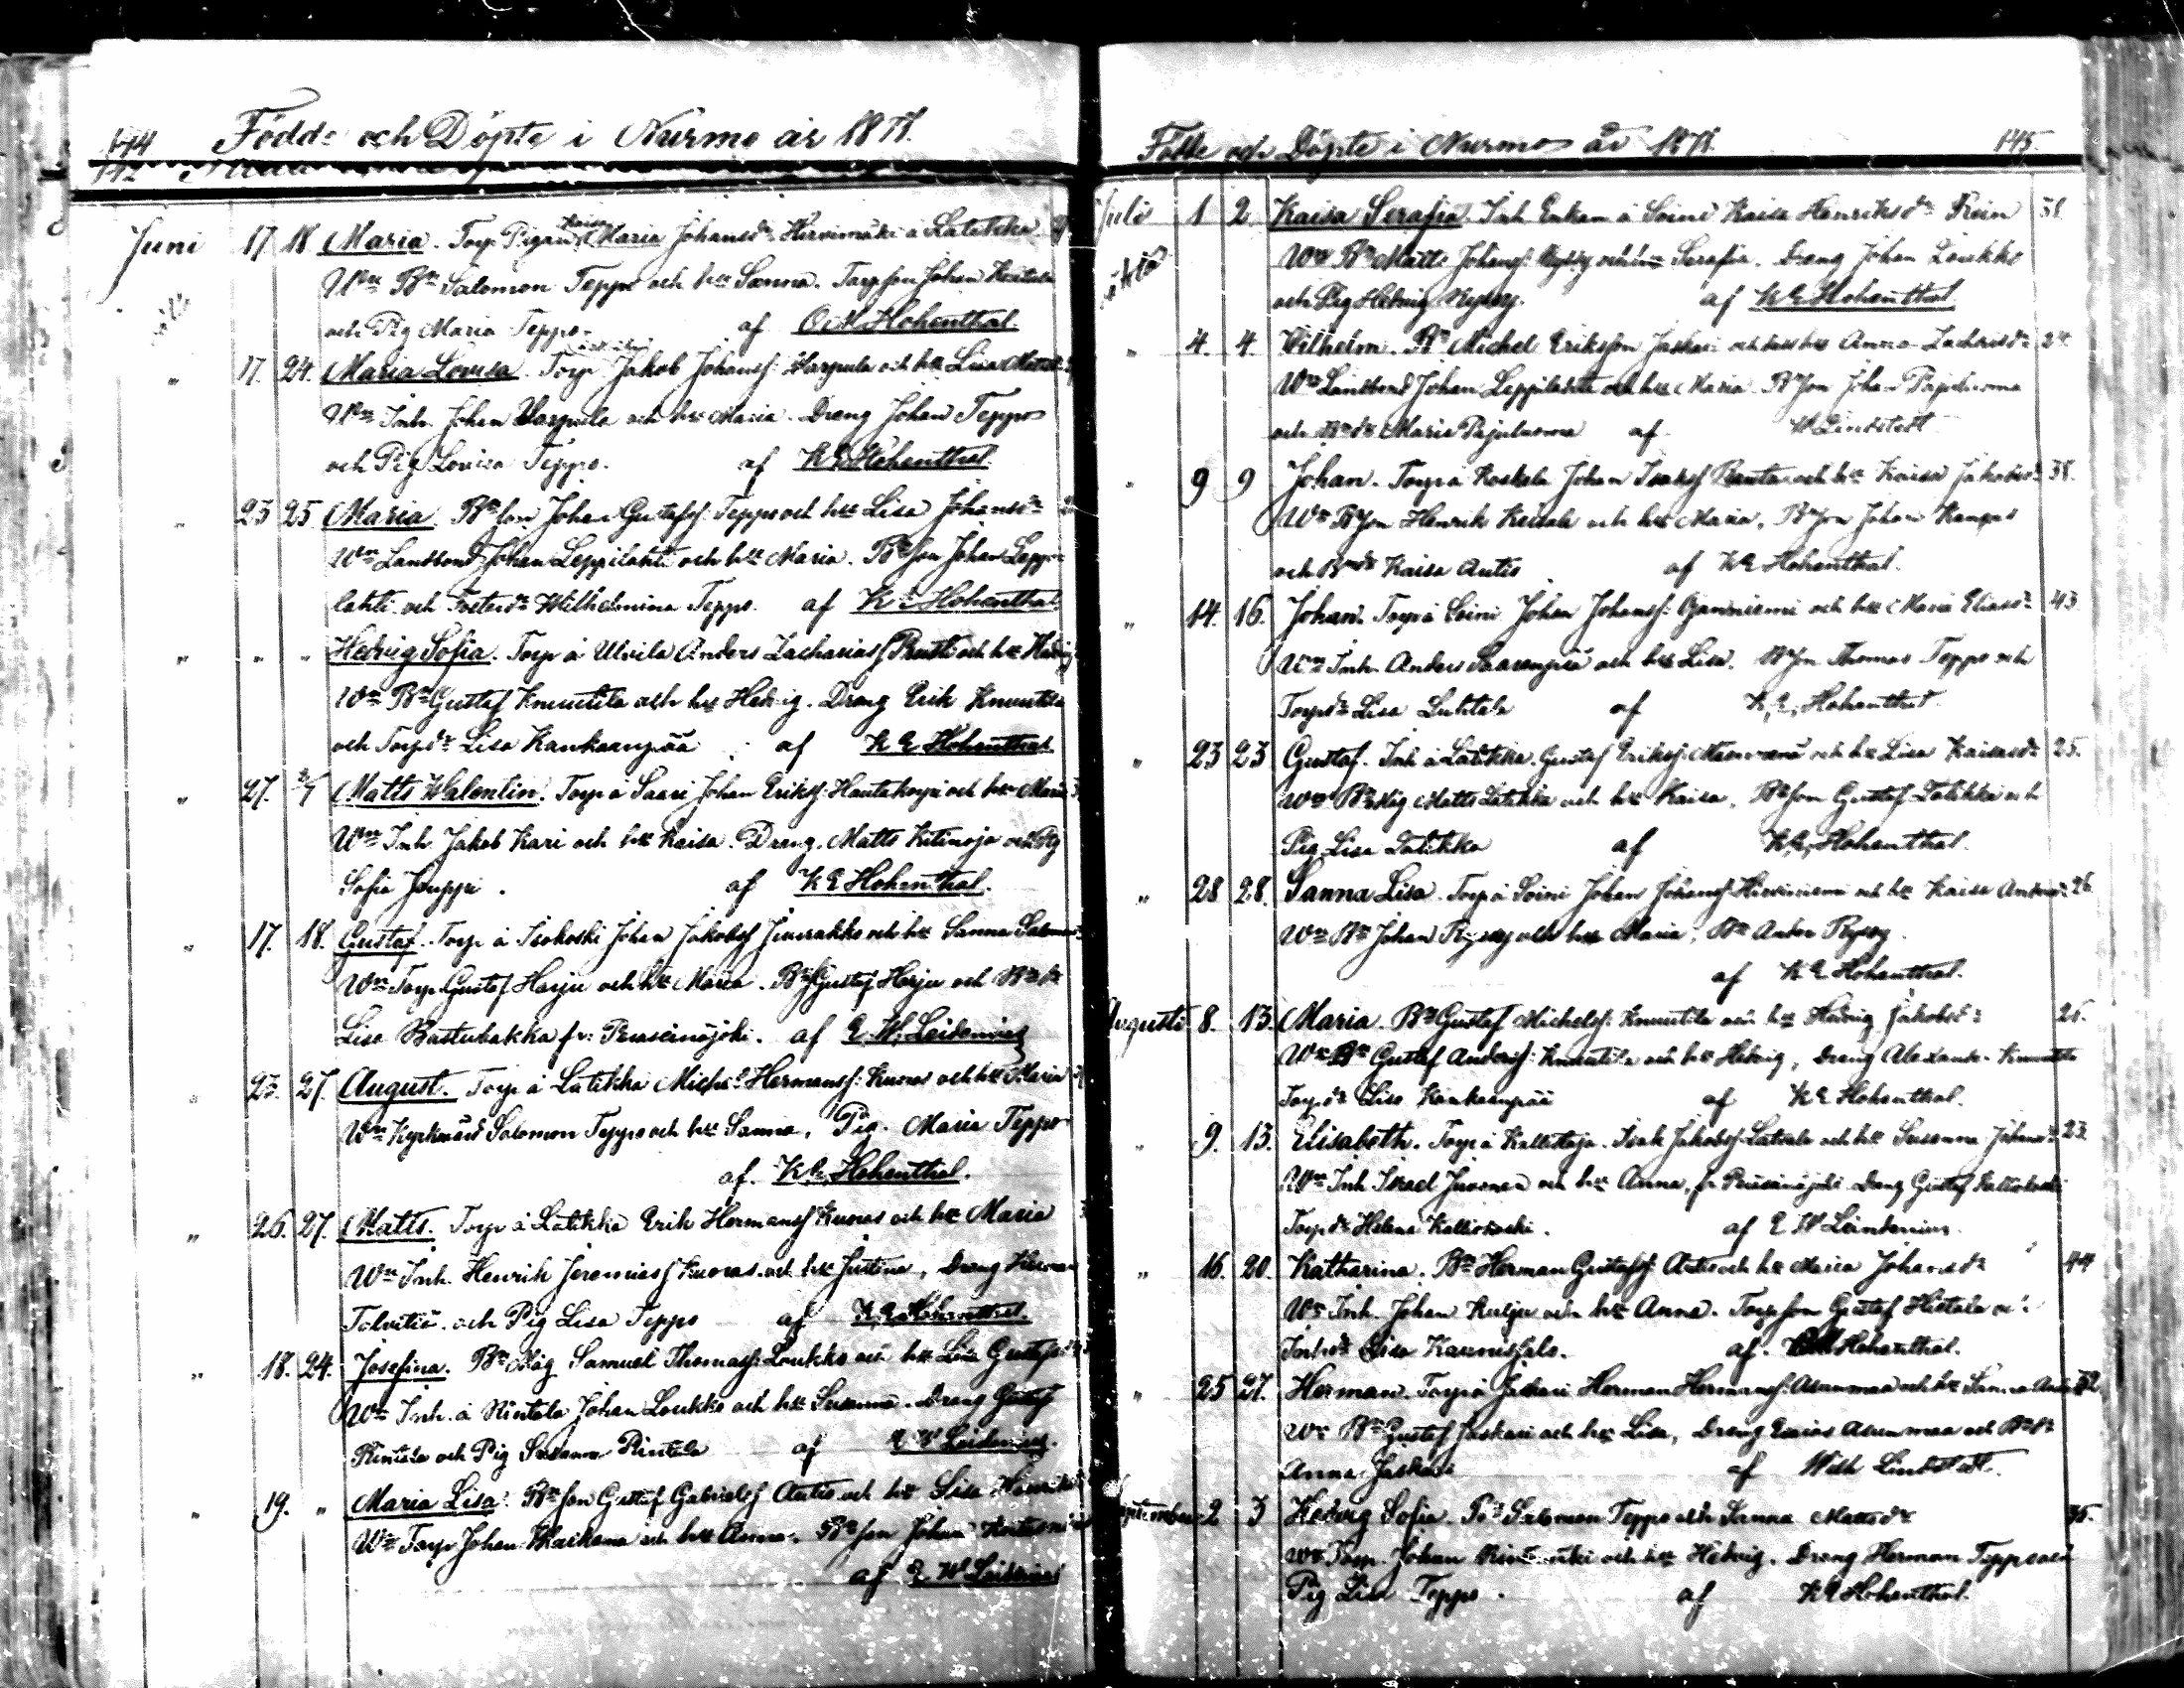 144 Födde och Döpte i Nurmo år 1871.
Juni 17. 18. Maria. Torp. Pigan Maria Johansdr Hirvimäki å Latikka
Wn Bn Salomon Teppo och hu Sanna. Torpson Johan Keitala
och Pig Maria Teppo. af O M Hohenthal
" 17. 24. Maria Lovisa. Torp Jakob Johansf: Harpula och hu Lisa
Wn Inh. Johan Harpula och hu Maria. Dreng Johan Teppo
och Pig Lovisa Teppo. af K E Hohenthal
" 23 25 Maria. Bn son Johan Gustafsf: Teppo och hu Lisa Johansdr
Wn Landbond Johan Leppilahti och hu Maria. Bn son Johan Leppi-
lahti och Fosterdr Wilhelmina Teppo. af K E Hohenthal
" " " Hedvig Sofia. Torp å Ulvila Anders Zachariasf och hu Hedvig
Wn Bn Gustaf Knuutila och hu Hedvig. Dreng Erik Knuutila
och Torpdr Lisa Kankaanpää af K E Hohenthal
" 27. 2/7 Matts Walentin. Torp å Saari Johan Eriksf: Hautakorpi och hu Maria
Wn Inh. Jakob Kari och hu Kaisa. Dreng. Matts Kitinoja och Pig
Sofia Jouppi. af K E Hohenthal.
" 17. 18. Gustaf. Torp å Isokoski Johan Jakobsf och hu Sanna
Wn Torp. Gustaf Harju och hu Maria. Bn Gustaf Harju och Bndr
Lisa fr: Peräseinäjoki. af E. W. Leidenius
" 23. 27. August. Torp å Latikka Michel Hermansf: Kuoras och hu Maria
Wn Kyrkovärd Salomon Teppo och hu Sanna, Pig. Maria Teppo
af. K E Hohenthal.
" 26. 27. Matts. Torp å Latikka Erik Hermansf Kuoras och hu Maria
Wn Inh. Henrik Jeremiasf Kuoras och hu Justina, Dreng Herman
Talvitie. och Pig Lisa Teppo af K E Hohenthal.
" 18. 24. Josefina. Bn Måg Samuel Thomasf: Loukko och hu Lisa Gustafsdr
Wn Inh. å Rintala Johan Loukko och hu Susanna. Dreng Gustaf
Rintala och Pig Susanna Rintala af E W Leidenius.
" 19. " Maria Lisa. Bn son Gustaf Gabrielsf Antis och hu Lisa
Wn Torp Johan och hu Anna. Bn son Johan
af E. W Leidenius
Födde och Döpte i Nurmo år 1871. 145.
Juli 1 2 Kaisa Serafia. Inh Enkan å Soini Kaisa Henriksdr 38
Wn Bn Matts Johansf: och hu Serafia. Dreng Johan Loukko
och Pig Hedvig af K E Hohenthal
" 4. 4. Wilhelm. Bn Michel Eriksson Jaskari och hu Anna 24.
Wn Landbond Johan Leppilahti och hu Maria. Bn son Johan Pajuluoma
och Bndr Maria Pajuluoma af W Lindstedt
" 9 9 Johan. Torp å Koskela Johan Isaksf och hu Kaisa Jakobsdr 38.
Wn Bn son Henrik Keisala och hu Maria, Bn son Johan Kangas
och Bndr Kaisa Antis af K E Hohenthal.
" 14. 16. Johan. Torp å Soini Johan Johansf: och hu Maria Eliasdr 43.
Wn Inh. Anders Saarenpää och hu Lisa. Bn son Thomas Teppo och
Torpdr Lisa af K. E. Hohenthal
" 23 23 Gustaf. Inh å Latikka. Gustaf Eriksf: och hu Lisa 25.
Wn Bn Måg Matts Latikka och hu Kaisa, Bn son Gustaf Latikka och
Pig Lisa Latikka af K. E. Hohenthal.
" 28 28. Sanna Lisa. Torp å Soini Johan Johansf: Hirviniemi och hu Kaisa 26
Wn Bn Johan och hu Maria, Bn Anton
af K E Hohenthal.
Augusti 8. 13. Maria. Bn Gustaf Michelsf: Knuutila och hu Hedvig Jakobsdr 26.
Wn Bn Gustaf Andersf: Knuutila och hu Hedvig, Dreng Alexander Knuutila
Torpdr Lisa Kankaanpää af K E Hohenthal.
" 9. 13. Elisabeth. Torp å Isak Jakobsf Latvala och hu Susanna 23.
Wn Inh Israel Juvonen och hu Anna, fr Peräseinäjoki Dreng Gustaf Kalliokoski
Torpdr Helena Kalliokoski. af E W Leidenius.
" 16. 20. Katharina. Bn Herman Gustafsf: Antis och hu Maria Johansdr 44
Wn Inh. Johan och hu Anna. Torpson Gustaf Hietala och
Inhdr Lisa af. O M Hohenthal.
" 25 27. Herman. Torp å Jaskari Herman Hermansf: Asunmaa och hu Sanna 32
Wn Bn Gustaf Jaskari och hu Lisa, Dreng Esaias Asunmaa och Bndr
Anna Jaskari af Wilh Lindstedt.
September 2 3 Hedvig Sofia. Bn Salomon Teppo och Sanna Mattsdr 35.
Wn Torp. Johan och hu Hedvig. Dreng Herman Teppo och
Pig Lisa Teppo. af K E Hohenthal.